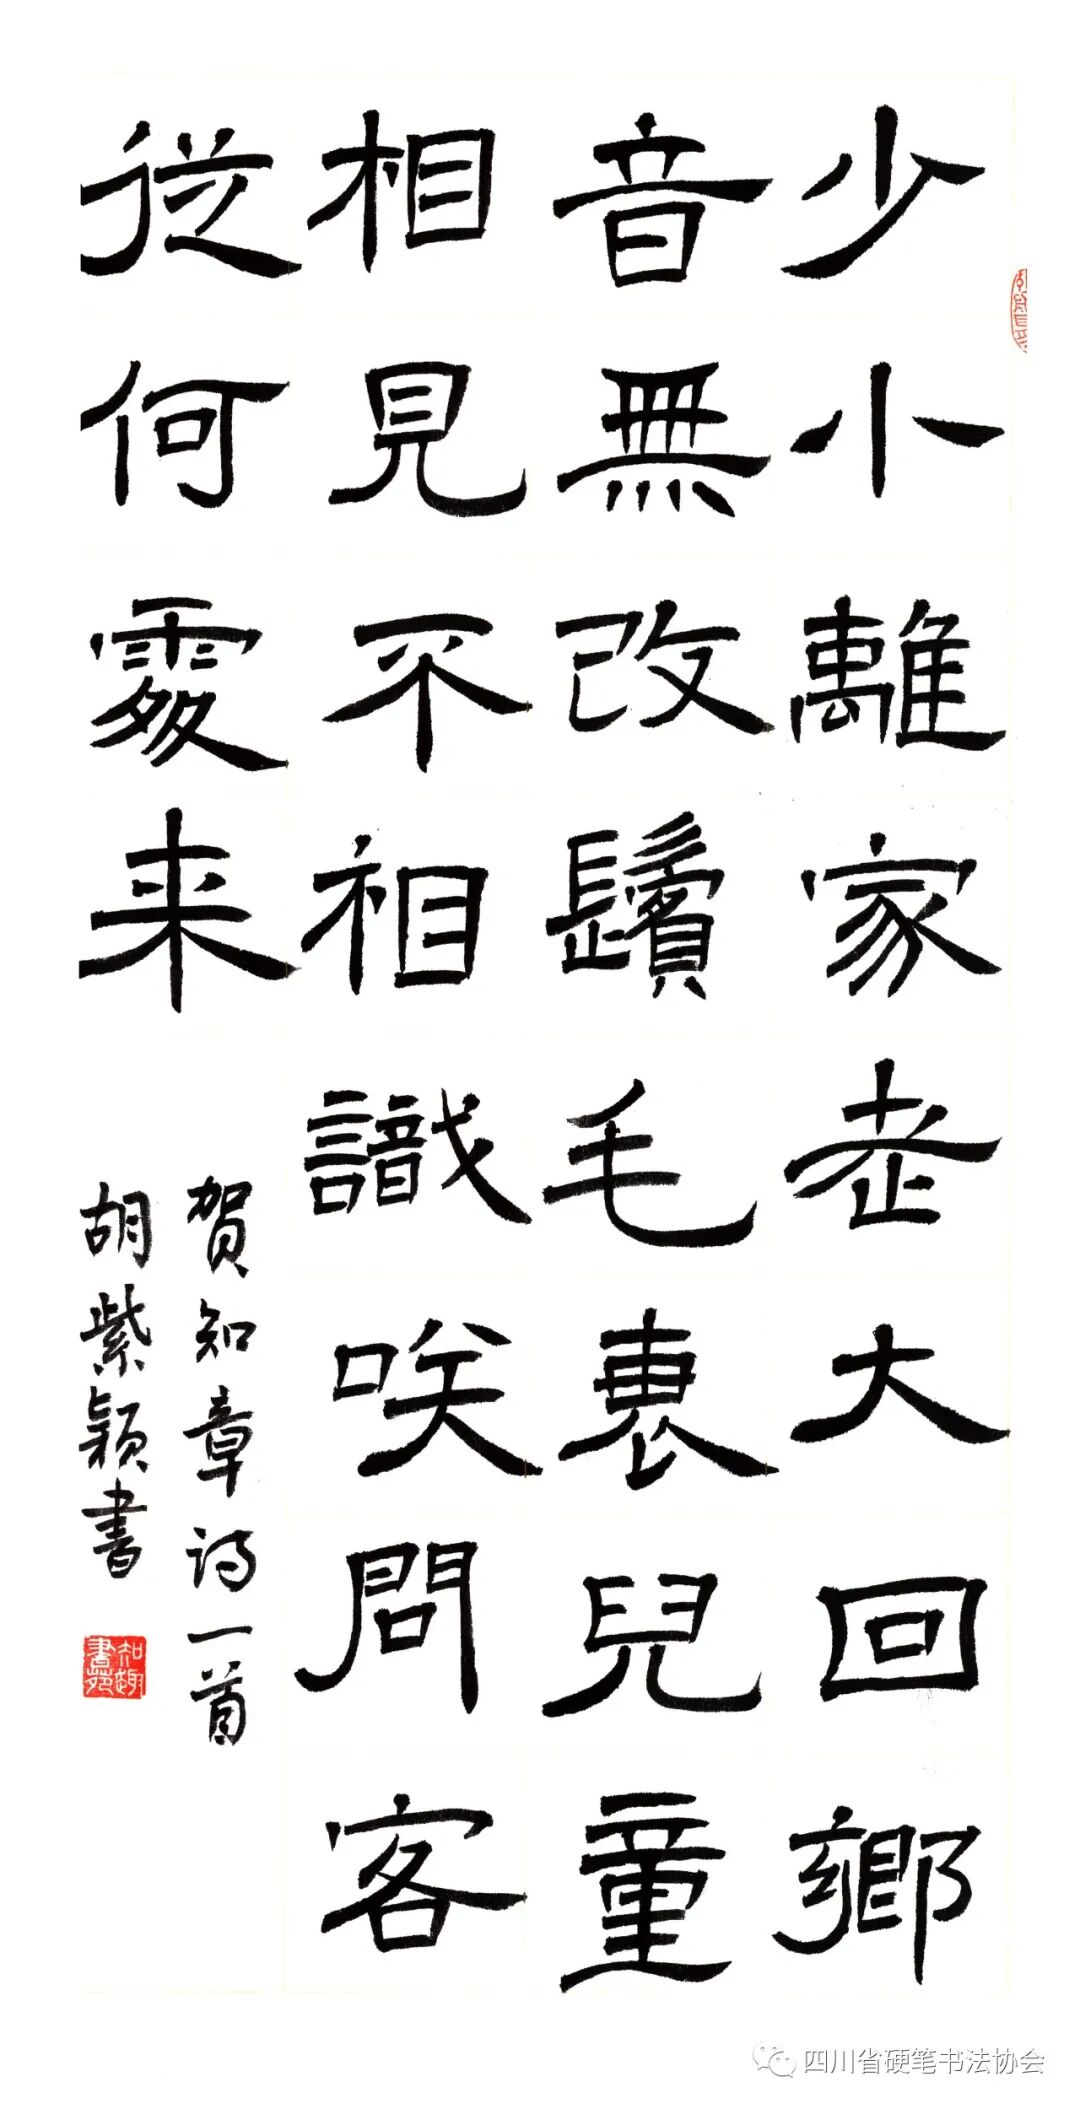 少小離家老大回鄉
音無改鬢毛衰兒童
相見不相識咲問客
從何處来
贺知章诗一首
胡紫颖書
四川省硬笔书法协会